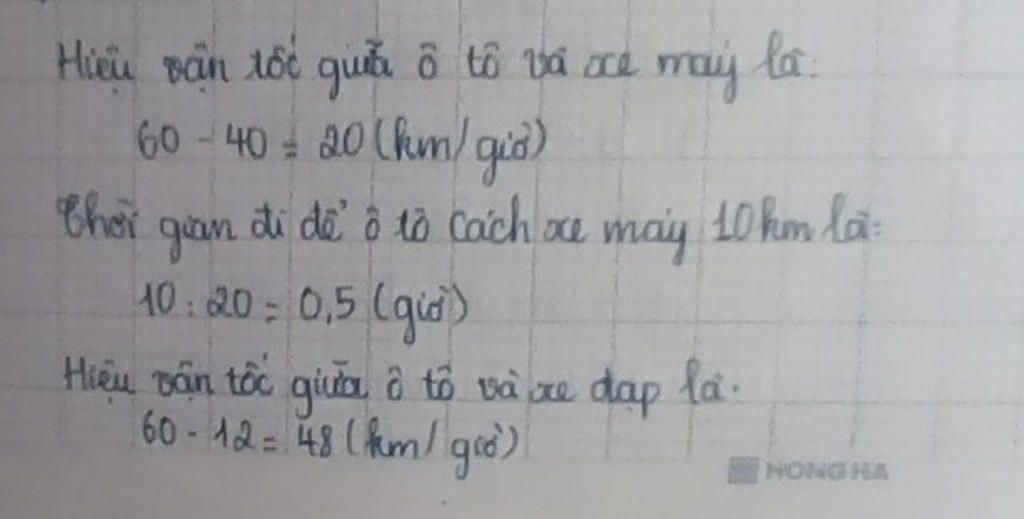 Hiệu vận tốc giữa ô tô và xe máy là:
60 - 40 = 20 (km/giờ)
Thời gian đi để ô tô cách xe máy 10km là:
10 : 20 = 0,5 (giờ)
Hiệu vận tốc giữa ô tô và xe đạp là.
60 - 12 = 48 (km/giờ)
HONG HA